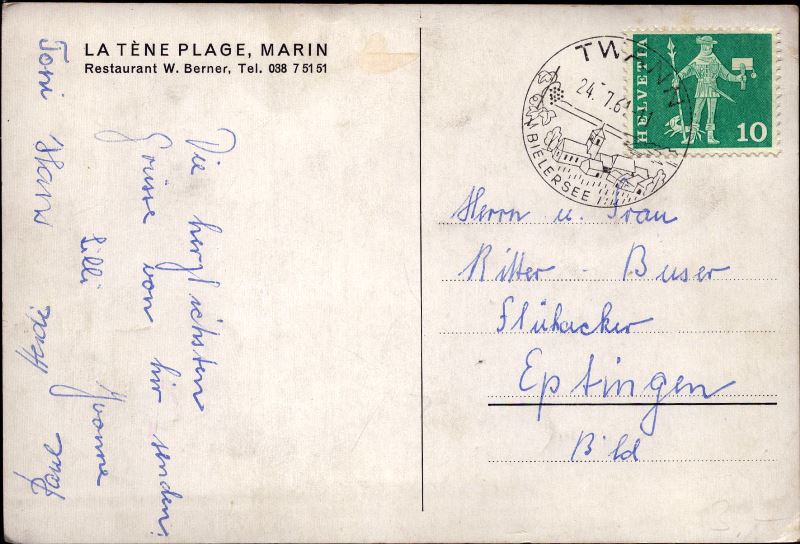 LA TÈNE PLAGE, MARIN
Restaurant W. Berner, Tel. 038 7 51 51
Die herzlichsten
Grüsse von hir senden:
Lilli Yvonne
Toni Hans Heidi Paul
TWANN
24. 7. 6
AM BIELERSEE
HELVETIA
10
Herrn u. Frau
Ritter - Buser
Flühacker
Eptingen
Bld